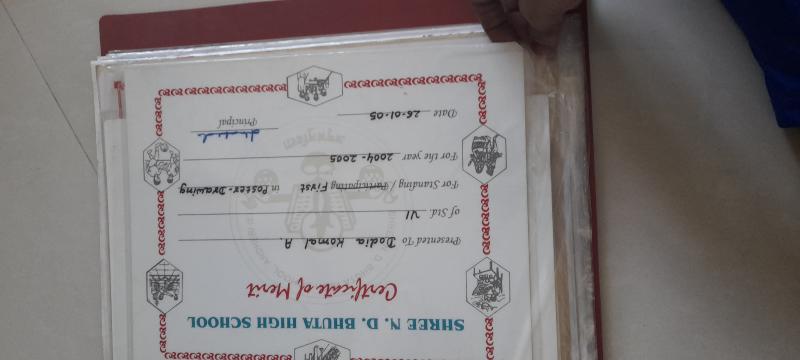 SHREE N. D. BHUTA HIGH SCHOOL
Certificate of Merit
Presented To Dodia Komal A.
of Std. VI
For Standing / Participating First in Poster-Drawing
For the year 2004-2005
Date 26-01-05
Principal